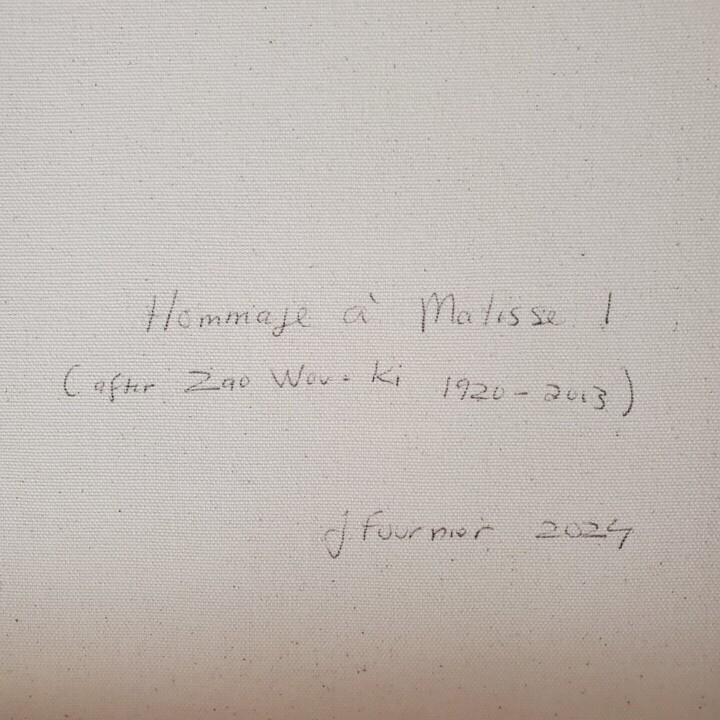 Hommage à Matisse I
(after Zao Wou-Ki 1920-2013)
J Fournier 2024